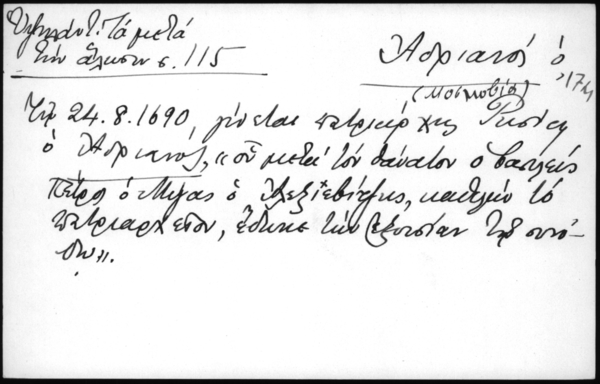 Ὑψηλάντ. Τά μετά
τήν ἅλωσιν σ. 115
Ἀδριανός ὁ
(Μοσχοβία)
Τῇ 24.8.1690, γίνεται πατριάρχης Ῥωσίας
ὁ Ἀδριανός, "οὗ μετά τόν θάνατον ὁ βασιλεύς
Πέτρος ὁ Μέγας ὁ Ἀλεξιεβίτζης, καθελών τό
πατριαρχεῖον, ἔδωκε τήν ἐξουσίαν τῇ συνό-
δῳ".